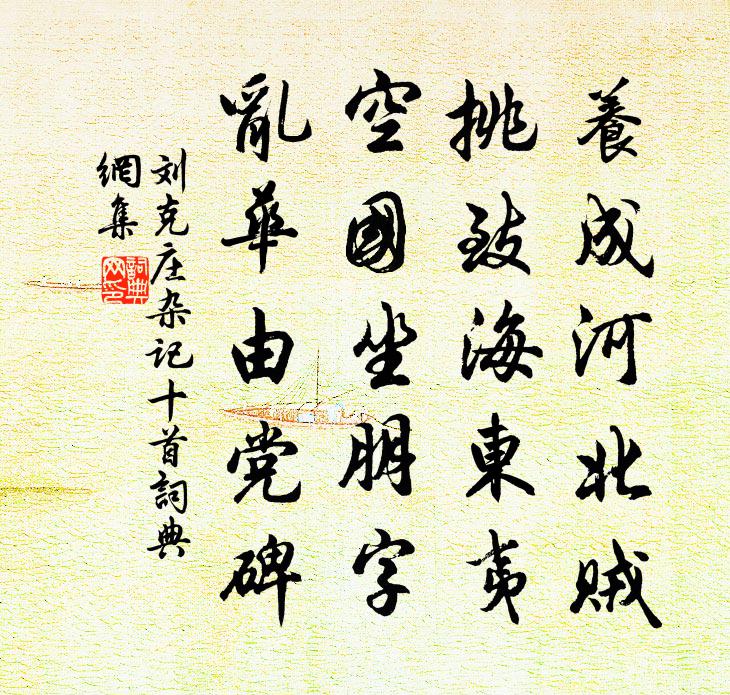 養成河北賊
挑致海東夷
空國坐朋字
亂華由党碑
刘克庄杂记十首詞典
網集
詞典
網印